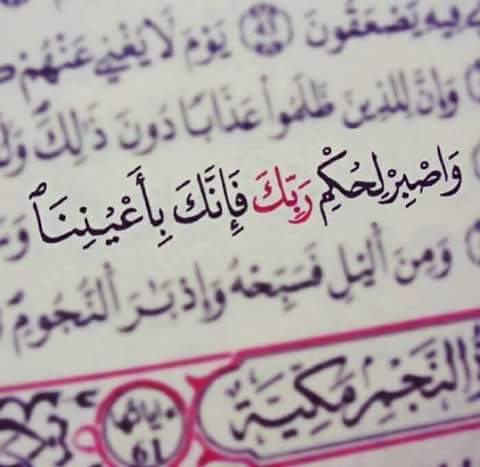 فِيهِ يُصْعَقُونَ ٤٥ يَوْمَ لَا يُغْنِي عَنْهُمْ
وَإِنَّ لِلَّذِينَ ظَلَمُوا۟ عَذَابًا دُونَ ذَٰلِكَ
وَٱصْبِرْ لِحُكْمِ رَبِّكَ فَإِنَّكَ بِأَعْيُنِنَا
وَمِنَ ٱلَّيْلِ فَسَبِّحْهُ وَإِدْبَٰرَ ٱلنُّجُومِ
ٱلنَّجْمِ مَكِّيَّة